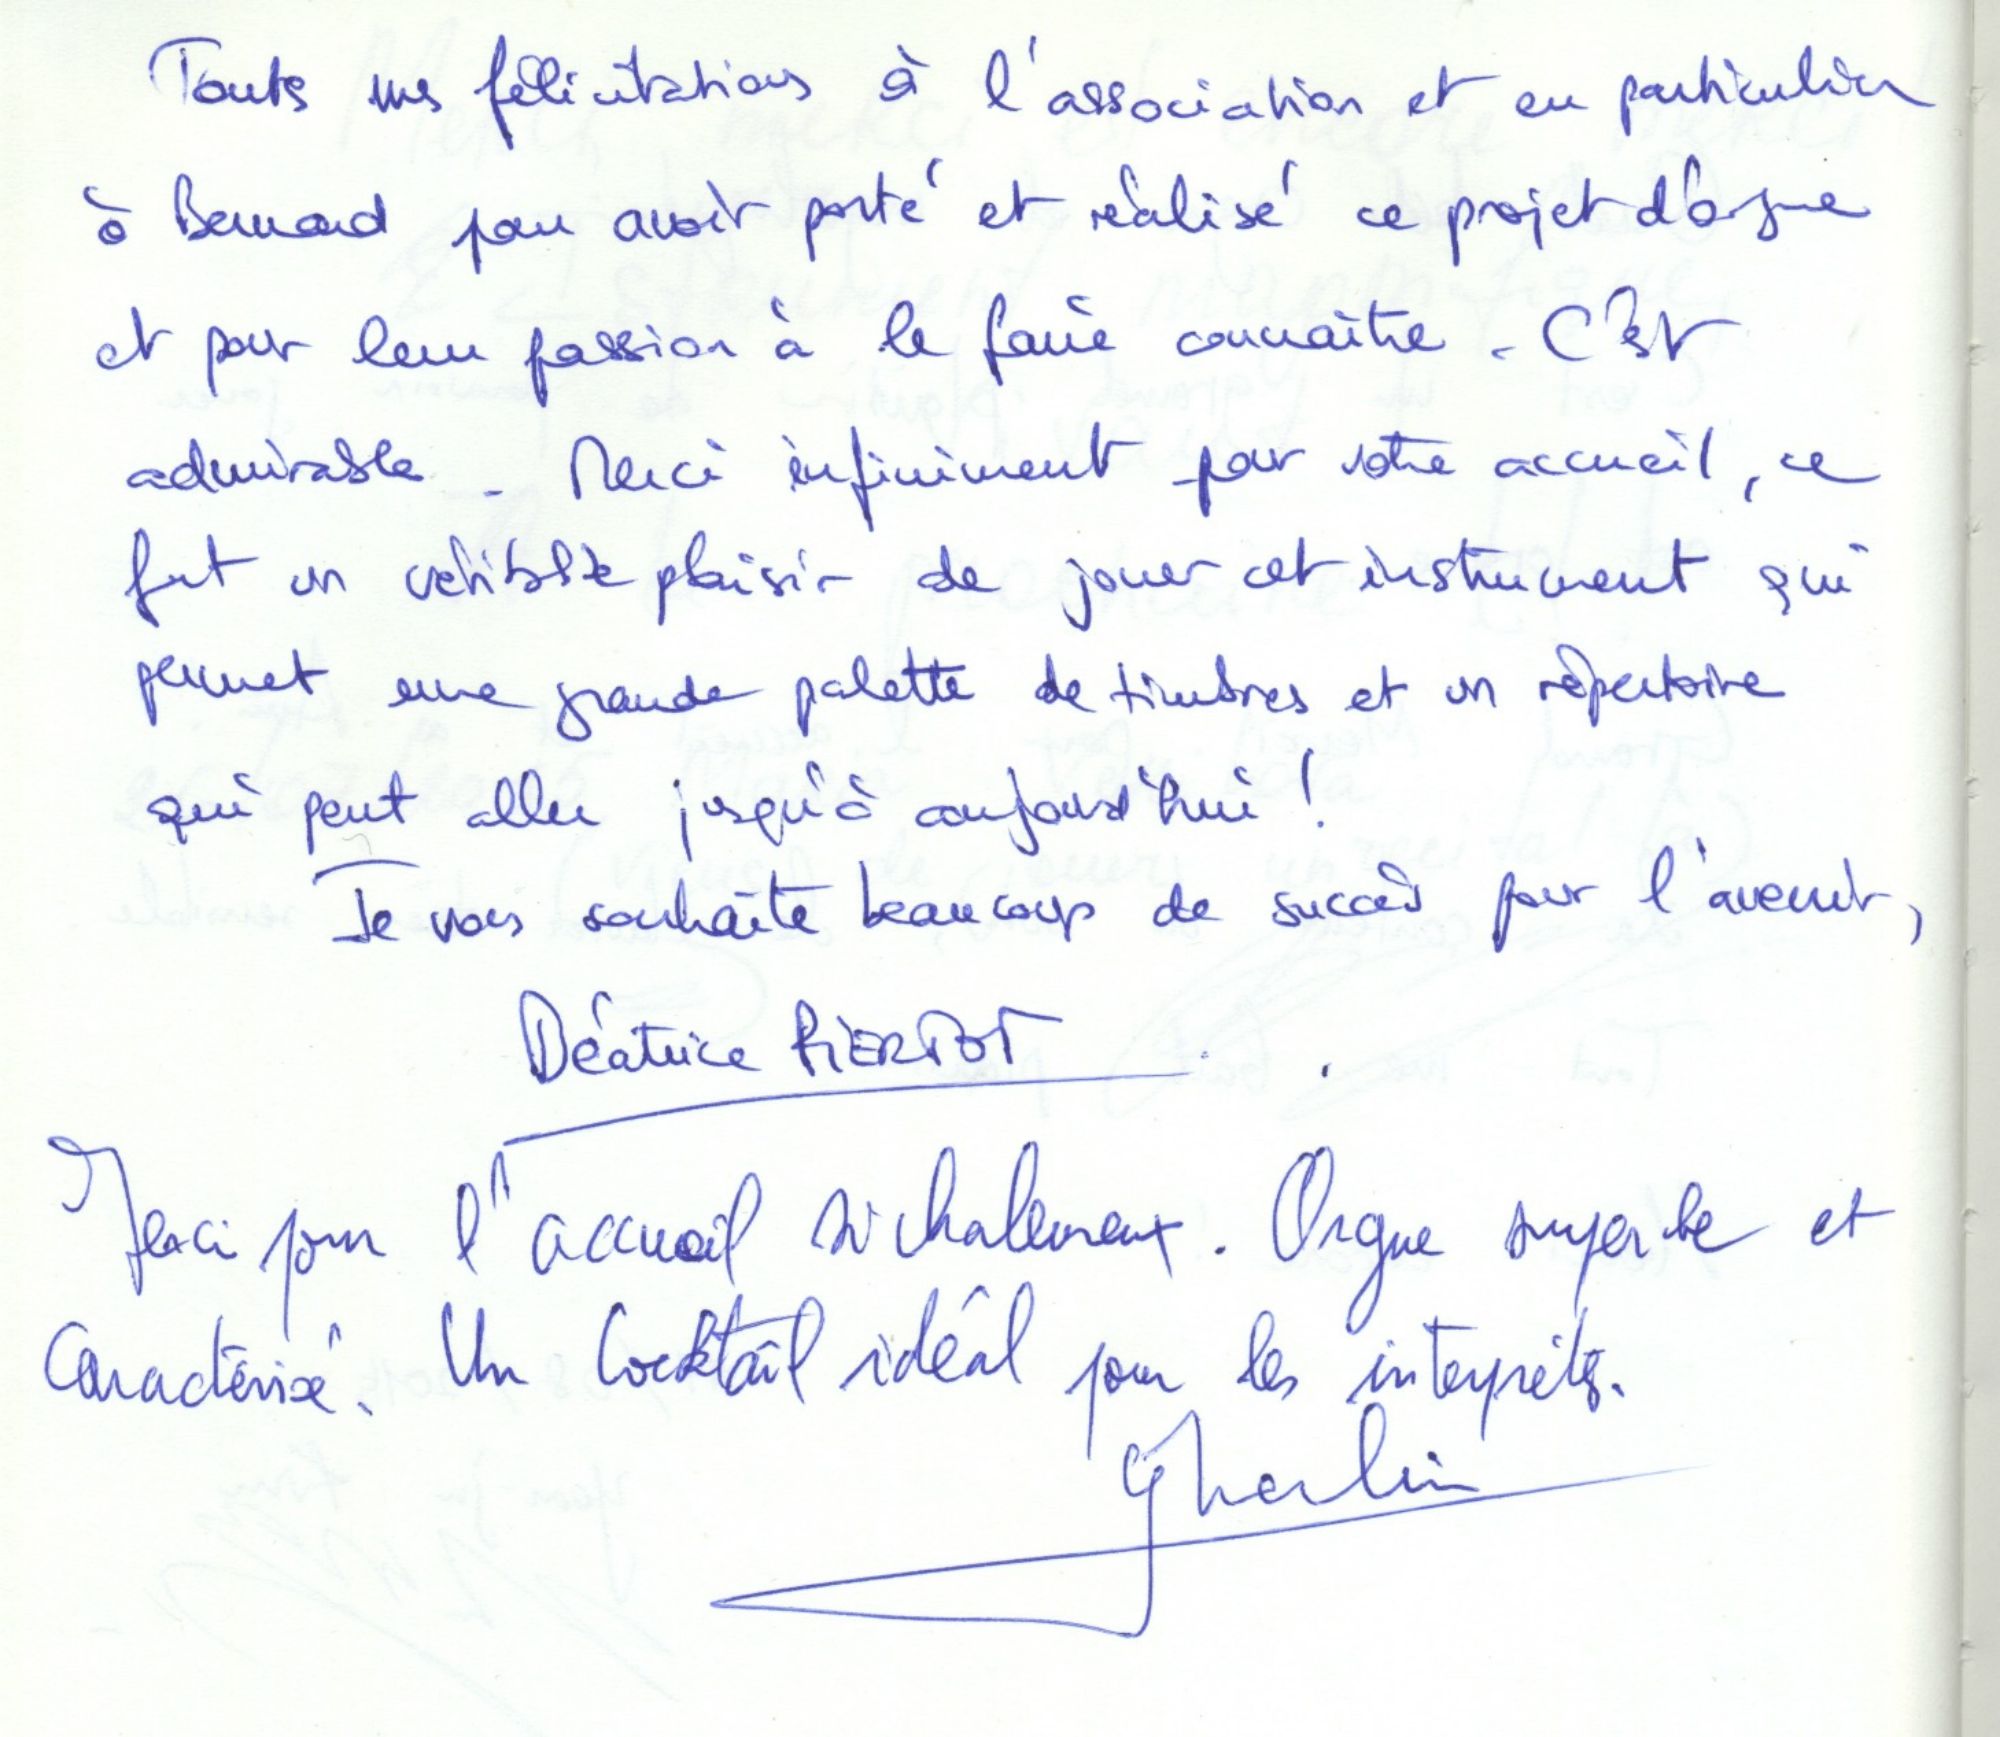 Toutes mes félicitations à l'association et en particulier
à Bernard pour avoir porté et réalisé ce projet d'orgue
et pour leur passion à le faire connaître. C'est
admirable. Merci infiniment pour votre accueil, ce
fut un véritable plaisir de jouer cet instrument qui
permet une grande palette de timbres et un répertoire
qui peut aller jusqu'à aujourd'hui !
Je vous souhaite beaucoup de succès pour l'avenir,
Béatrice PIERTOT
Merci pour l'accueil si chaleureux. Orgue superbe et
Caractérisé. Un Cocktail idéal pour les interprètes.